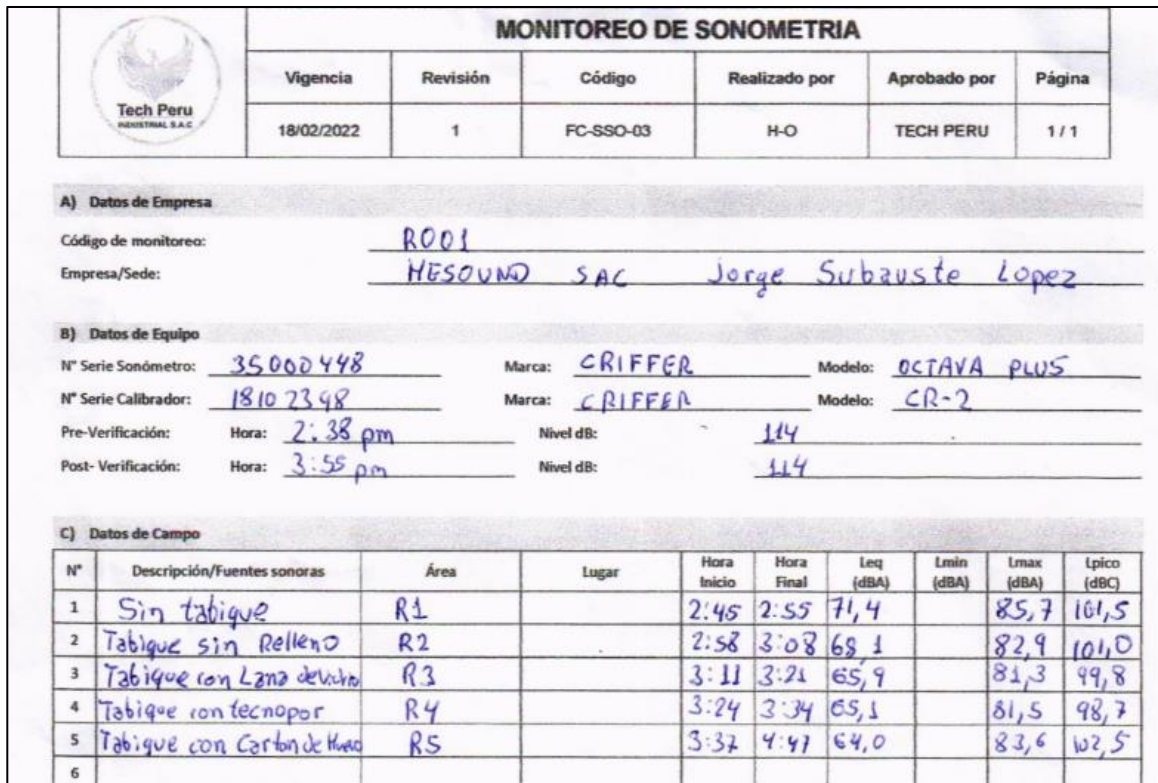 MONITOREO DE SONOMETRIA
Tech Peru
INDUSTRIAL S.A.C
Vigencia Revisión Código Realizado por Aprobado por Página
18/02/2022 1 FC-SSO-03 H-O TECH PERU 1 / 1
A) Datos de Empresa
Código de monitoreo: R001
Empresa/Sede: HESOUND SAC Jorge Subauste Lopez
B) Datos de Equipo
N° Serie Sonómetro: 35000448 Marca: CRIFFER Modelo: OCTAVA PLUS
N° Serie Calibrador: 18102398 Marca: CRIFFER Modelo: CR-2
Pre-Verificación: Hora: 2:38 pm Nivel dB: 114
Post- Verificación: Hora: 3:55 pm Nivel dB: 114
C) Datos de Campo
N° Descripción/Fuentes sonoras Área Lugar Hora Inicio Hora Final Leq (dBA) Lmin (dBA) Lmax (dBA) Lpico (dBC)
1 Sin tabique R1 2:45 2:55 71,4 85,7 101,5
2 Tabique sin Relleno R2 2:58 3:08 68,1 82,9 101,0
3 Tabique con Lana de vidrio R3 3:11 3:21 65,9 81,3 99,8
4 Tabique con tecnopor R4 3:24 3:34 65,1 81,5 98,7
5 Tabique con Carton de Huevo R5 3:37 4:47 64,0 83,6 102,5
6